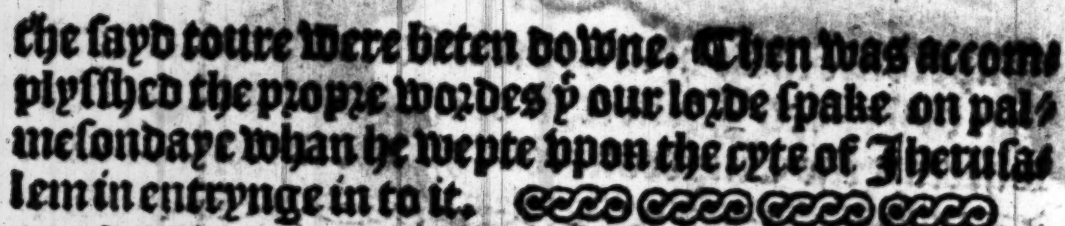 the sayd toure were beten downe. Then was accom-
plysshed the propre wordes yͭ our lorde spake on pal-
mesondaye whan he wepte vpon the cyte of Jherusa-
lem in entrynge in to it.